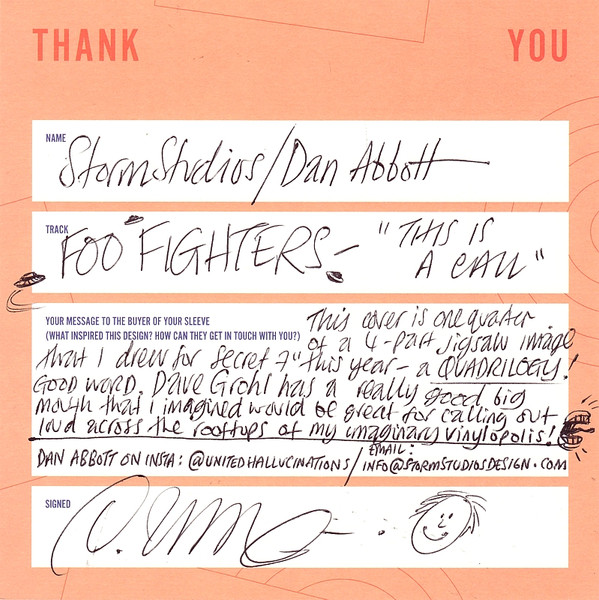 THANK YOU
NAME
StormStudios/Dan Abbott
TRACK
FOO FIGHTERS - "THIS IS
A CALL"
YOUR MESSAGE TO THE BUYER OF YOUR SLEEVE
(WHAT INSPIRED THIS DESIGN? HOW CAN THEY GET IN TOUCH WITH YOU?)
This cover is one quarter
of a 4-part jigsaw image
that I drew for Secret 7" this year - a QUADRILOGY!
GOOD WORD. Dave Grohl has a really good big
mouth that I imagined would be great for calling out
loud across the rooftops of my imaginary vinylopolis!
DAN ABBOTT ON INSTA: @UNITEDHALLUCINATIONS / EMAIL: INFO@STORMSTUDIOSDESIGN.COM
SIGNED